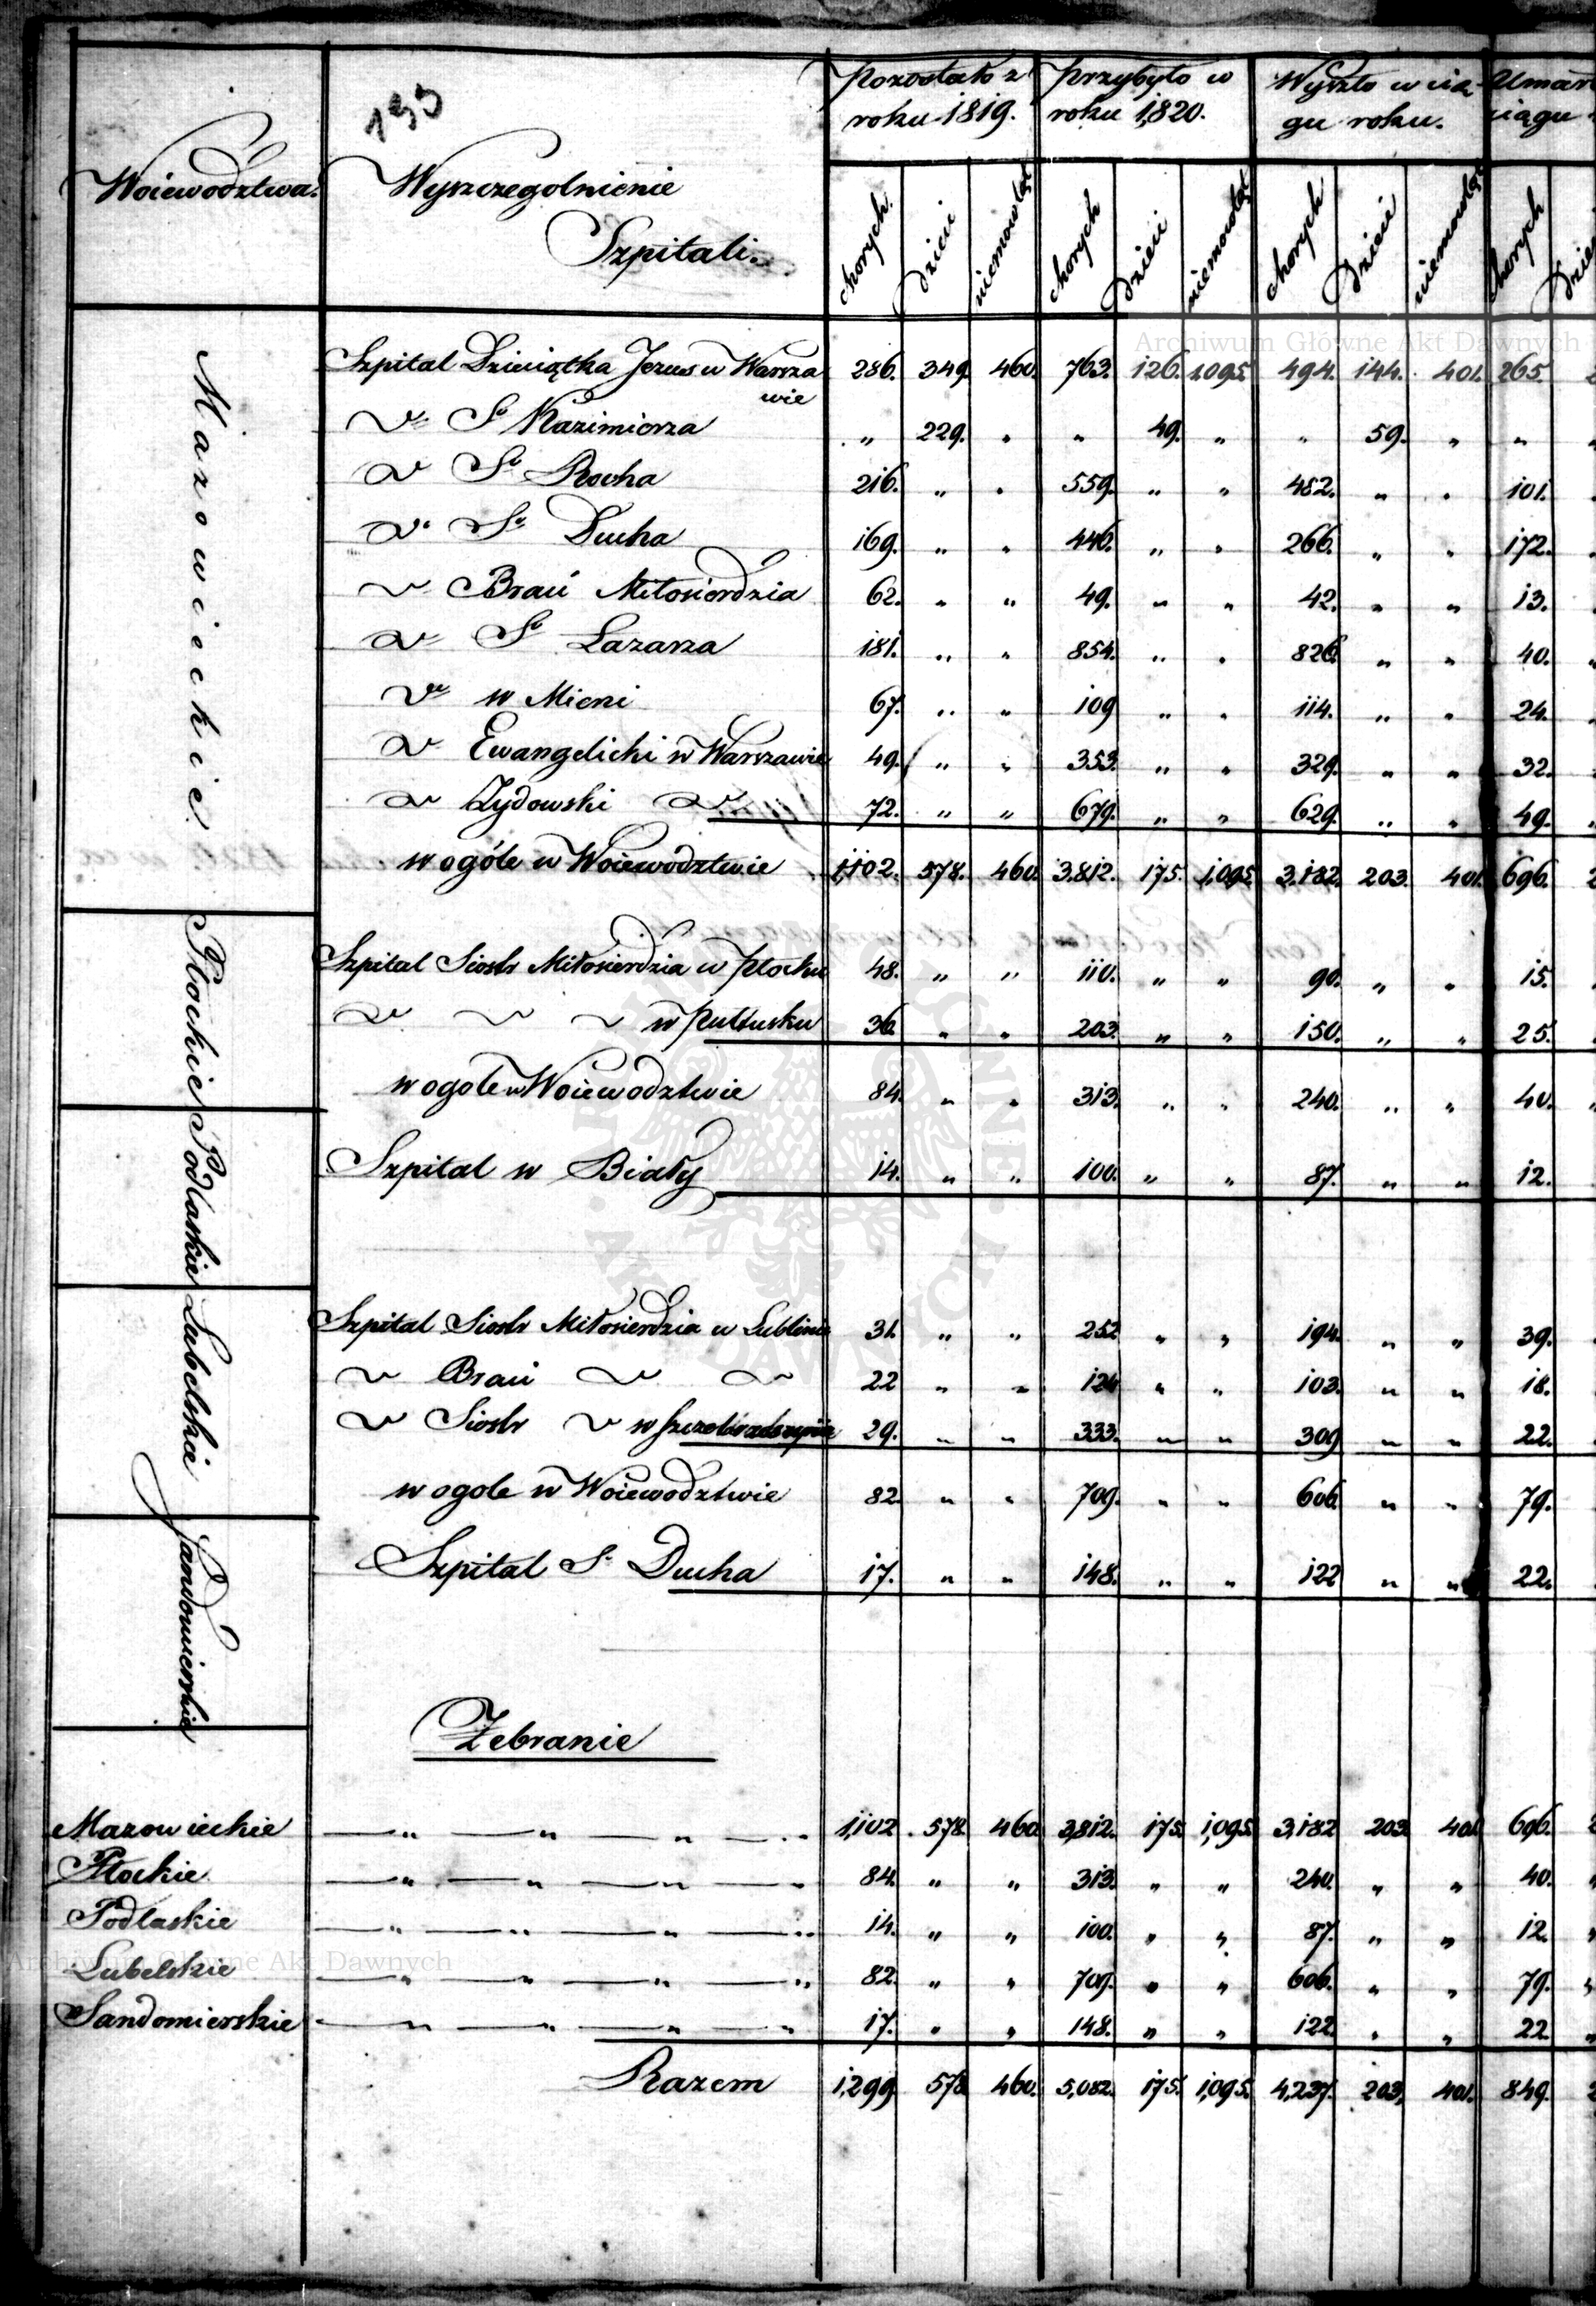 193
Woiewodztwa.
Wyszczegolnienie
Szpitali.
Pozostało z roku 1819.
przybyło w roku 1,820.
Wyszło w cią-
gu roku.
Umar
ciągu
chorych dzieci niemowląt chorych dzieci niemowląt chorych dzieci niemowląt chorych dzie
Archiwum Główne Akt Dawnych
Mazowieckie
Szpital Dzieciątka Jezus w Warsza 286. 349. 460. 763. 126. 1,095. 494. 144. 401. 265.
wie
Do So Kazimierza " 229. " " 49. " " 59. " "
Do So Rocha 216. " " 559. " " 482. " " 101.
Do So Ducha 169. " " 446. " " 266. " " 172.
Do Braci Miłosierdzia 62. " " 49. " " 42. " " 13.
Do So Lazarza 181. " " 854. " " 826. " " 40.
Do w Mieni 67. " " 109 " " 114. " " 24.
Do Ewangelicki w Warszawie 49. " " 353. " " 329. " " 32.
Do Żydowski Do 72. " " 679. " " 629. " " 49.
w ogóle w Woiewodztwie 1,102. 578. 460. 3,812. 175. 1,095. 3,182. 203. 401. 696.
Płockie
Szpital Siostr Miłosierdzia w Płocku 48. " " 110. " " 90. " " 15.
Do Do Do w Pułtusku 36. " " 203. " " 150. " " 25.
w ogole w Woiewodztwie 84. " " 313. " " 240. " " 40.
Podlaskie
Szpital w Biały 14. " " 100. " " 87. " " 12.
Lubelskie
Szpital Siostr Miłosierdzia w Lublinie 31. " " 252 " " 194. " " 39.
Do Braci Do Do 22 " " 124 " " 103. " " 18.
Do Siostr Do w Szczebrzeszynie 29. " " 333. " " 309 " " 22.
w ogole w Woiewodztwie 82. " " 709. " " 606. " " 79.
Sandomierskie
Szpital S. Ducha 17. " " 148. " " 122 " " 22.
Zebranie
Mazowieckie — " — " — " — " 1,102 578. 460. 3,812. 175. 1,095. 3,182 203 401. 696.
Płockie — " — " — " — " 84. " " 313. " " 240. " " 40.
Podlaskie — " — " — " — " 14. " " 100. " " 87. " " 12.
Archiwum Główne Akt Dawnych
Lubelskie — " — " — " — " 82. " " 709. " " 606. " " 79.
Sandomierskie — " — " — " — " 17. " " 148. " " 122. " " 22.
Razem 1,299 578 460. 5,082. 175. 1,095. 4,237. 203. 401. 849.
ARCHIWUM GŁÓWNE AKT DAWNYCH